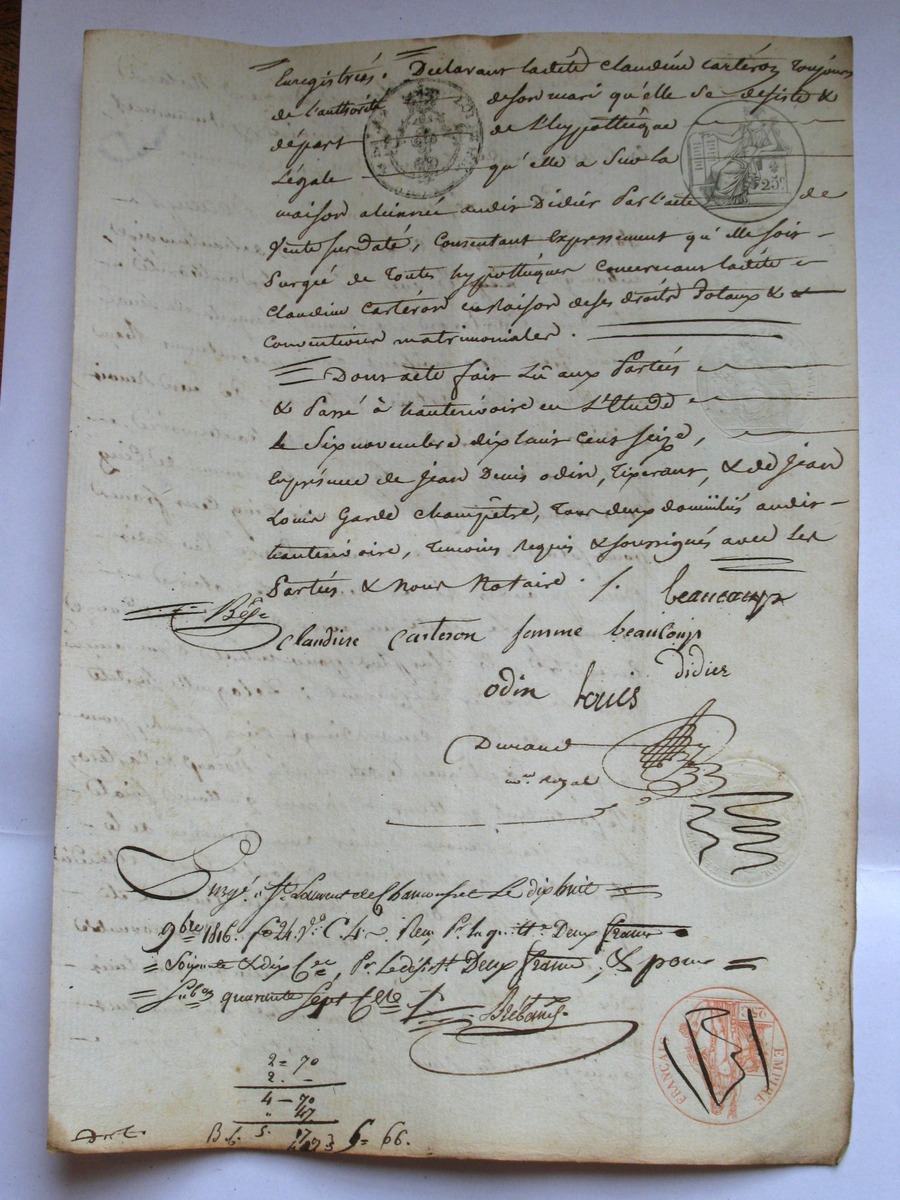 Enregistrées. Déclarant ladite Claudine Carteron toujours
de l'authorité de son mari qu'elle se desiste &
départ de l'hypothèque
Légale qu'elle a sur la
maison alienné audit Didier par l'acte de
vente susdaté, consentant expressement qu'elle soit
purgée de toutes hypothèques concernant ladite
Claudine Carteron en raison de ses droits Dotaux &
conventions matrimoniales.
Dont acte fait Lû aux Parties
& Passé à hauterivoire en L'Etude
le Six novembre dix huit cent seize,
En présence de Jean Denis odin, Tixerant, & de Jean
Louis Garde champêtre, tous deux domiciliés audit
hauterivoire, Temoins requis & soussignés avec les
Parties & Nous Notaire. /. beaucoup
claudine carteron famme beaucoup
didier
odin Louis
Durand
Royal
25c
Enrgé. à St. Laurent de Chamousset Le dix huit
9bre 1816. fo 24. Vo. C. 4. Reçu Pr. la quitt. Deux francs
Soixante & dix Cmes, Pr. Le désistt. Deux francs, & pour
Subon quarante Sept Ctes
2 = 70
2. -
4 - 70
47
5. 17
6 = 66.
EMPIRE FRANÇAIS
25c